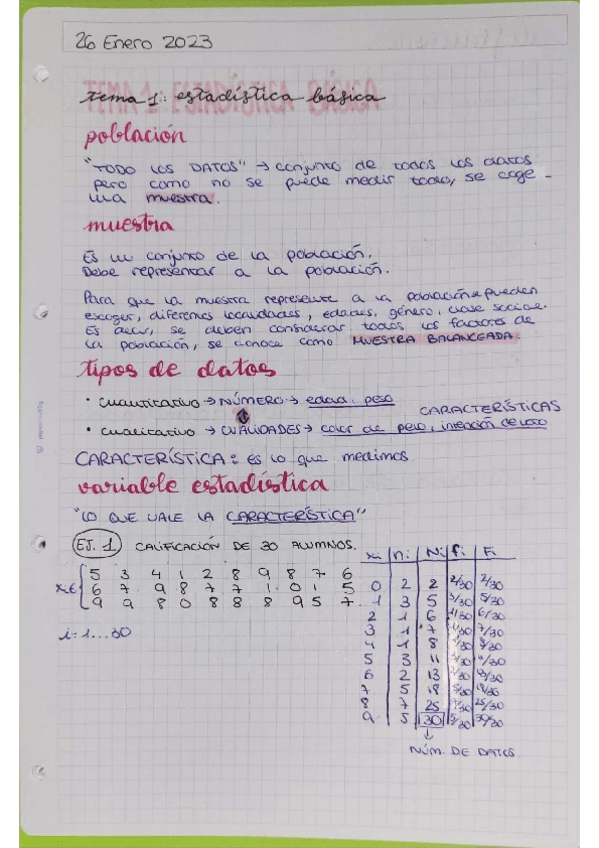 26 Enero 2023
tema 1: estadística básica
población
"TODO LOS DATOS" → conjunto de todos los datos
pero como no se puede medir todo, se coge
una muestra.
muestra
Es un conjunto de la población.
Debe representar a la población.
Para que la muestra represente a la población se pueden
escoger, diferentes localidades, edades, género, clase social.
Es decir, se deben considerar todos los factores de
la población, se conoce como MUESTRA BALANCEADA.
tipos de datos
• cuantitativo → NÚMERO → edad, peso
CARACTERÍSTICAS
• cualitativo → CUALIDADES → color de pelo, intención de voto
CARACTERÍSTICA: es lo que medimos
variable estadística
"LO QUE VALE LA CARACTERÍSTICA"
EJ. 1 CALIFICACIÓN DE 30 ALUMNOS.
5 3 4 1 2 8 9 8 7 6
xi ∈ 6 7 9 8 7 7 1 0 1 5
9 9 8 0 8 8 8 9 5 7
i = 1...30
xi ni Ni fi Fi
0 2 2 2/30 2/30
1 3 5 3/30 5/30
2 1 6 1/30 6/30
3 1 7 1/30 7/30
4 1 8 1/30 8/30
5 3 11 3/30 11/30
6 2 13 2/30 13/30
7 5 18 5/30 18/30
8 7 25 7/30 25/30
9 5 30 5/30 30/30
↓
NÚM. DE DATOS